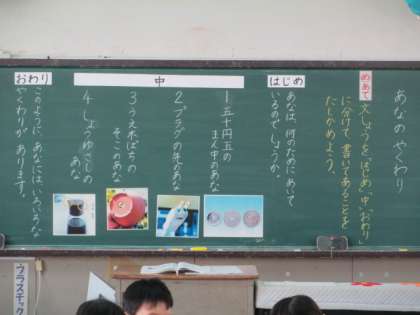 あなのやくわり
めあて
文しょうを「はじめ・中・おわり」
に分けて、書いてあることを
たしかめよう。
はじめ
あなは、何のためにあいて
いるのでしょうか。
中
1 五十円玉の
まん中のあな
2 プラグの先のあな
3 うえ木ばちの
そこのあな
4 しょうゆさしの
あな
おわり
このように、あなにはいろいろな
やくわりが あります。
プラスチック